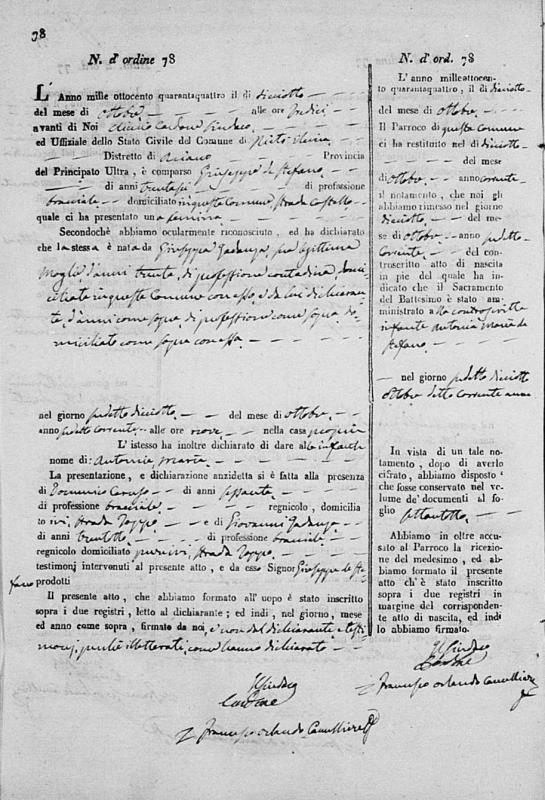 78
N. d'ordine 78
L'Anno mille ottocento quarantaquattro il dì diciotto
del mese di ottobre alle ore undici
avanti di Noi Cardone Sindaco
ed Uffiziale dello Stato Civile del Comune di
Distretto di Ariano Provincia
del Principato Ultra, è comparso Giuseppe de Stefano
di anni trentasei di professione
bracciale domiciliato in questo Comune, Strada Castello
quale ci ha presentato una femmina
Secondochè abbiamo ocularmente riconosciuto, ed ha dichiarato
che la stessa è nata da Giuseppa sua legittima
moglie d'anni trenta, di professione contadina, domi-
ciliata in questo Comune con esso, e da lui dichiaran-
te, d'anni come sopra, di professione come sopra, do-
miciliato come sopra con essa
nel giorno predetto diciotto del mese di ottobre
anno predetto corrente alle ore nove nella casa propria
L'istesso ha inoltre dichiarato di dare alla infante
nome di: Antonia Maria
La presentazione, e dichiarazione anzidetta si è fatta alla presenza
di Domenico Caruso di anni sessanta
di professione bracciale regnicolo, domicilia
to ivi, Strada Zoppo e di Giovanni
di anni trentotto di professione bracciale
regnicolo domiciliato pure ivi, Strada Zoppo
testimonj intervenuti al presente atto, e da esso Signor Giuseppe de Ste-
fano prodotti
Il presente atto, che abbiamo formato all'uopo è stato inscritto
sopra i due registri, letto al dichiarante; ed indi, nel giorno, mese
ed anno come sopra, firmato da noi, e non dal dichiarante e testi-
monj, perchè illetterati, come hanno dichiarato
Il Sindaco
Cardone
Francesco Orlando Cancelliere
N. d'ord. 78
L'anno milleottocen-
to quarantaquattro, il dì diciotto
del mese di ottobre
Il Parroco di questo Comune
ci ha restituito nel dì diciotto
del mese
di ottobre anno corrente
il notamento, che noi gli
abbiamo rimesso nel giorno
diciotto del me-
se di ottobre anno predetto
corrente del con-
troscritto atto di nascita
in piè del quale ha in-
dicato che il Sacramento
del Battesimo è stato am-
ministrato alla controscritta
infante Antonia Maria de
Stefano
nel giorno predetto diciotto
ottobre detto corrente anno
In vista di un tale no-
tamento, dopo di averlo
cifrato, abbiamo disposto
che fosse conservato nel vo-
lume de' documenti al fo-
glio settantotto
Abbiamo in oltre accu-
sato al Parroco la ricezio-
ne del medesimo, ed ab-
biamo formato il presente
atto ch'è stato inscritto
sopra i due registri in
margine del corrisponden-
te atto di nascita, ed indi
lo abbiamo firmato.
Il Sindaco
Cardone
Francesco Orlando Cancelliere